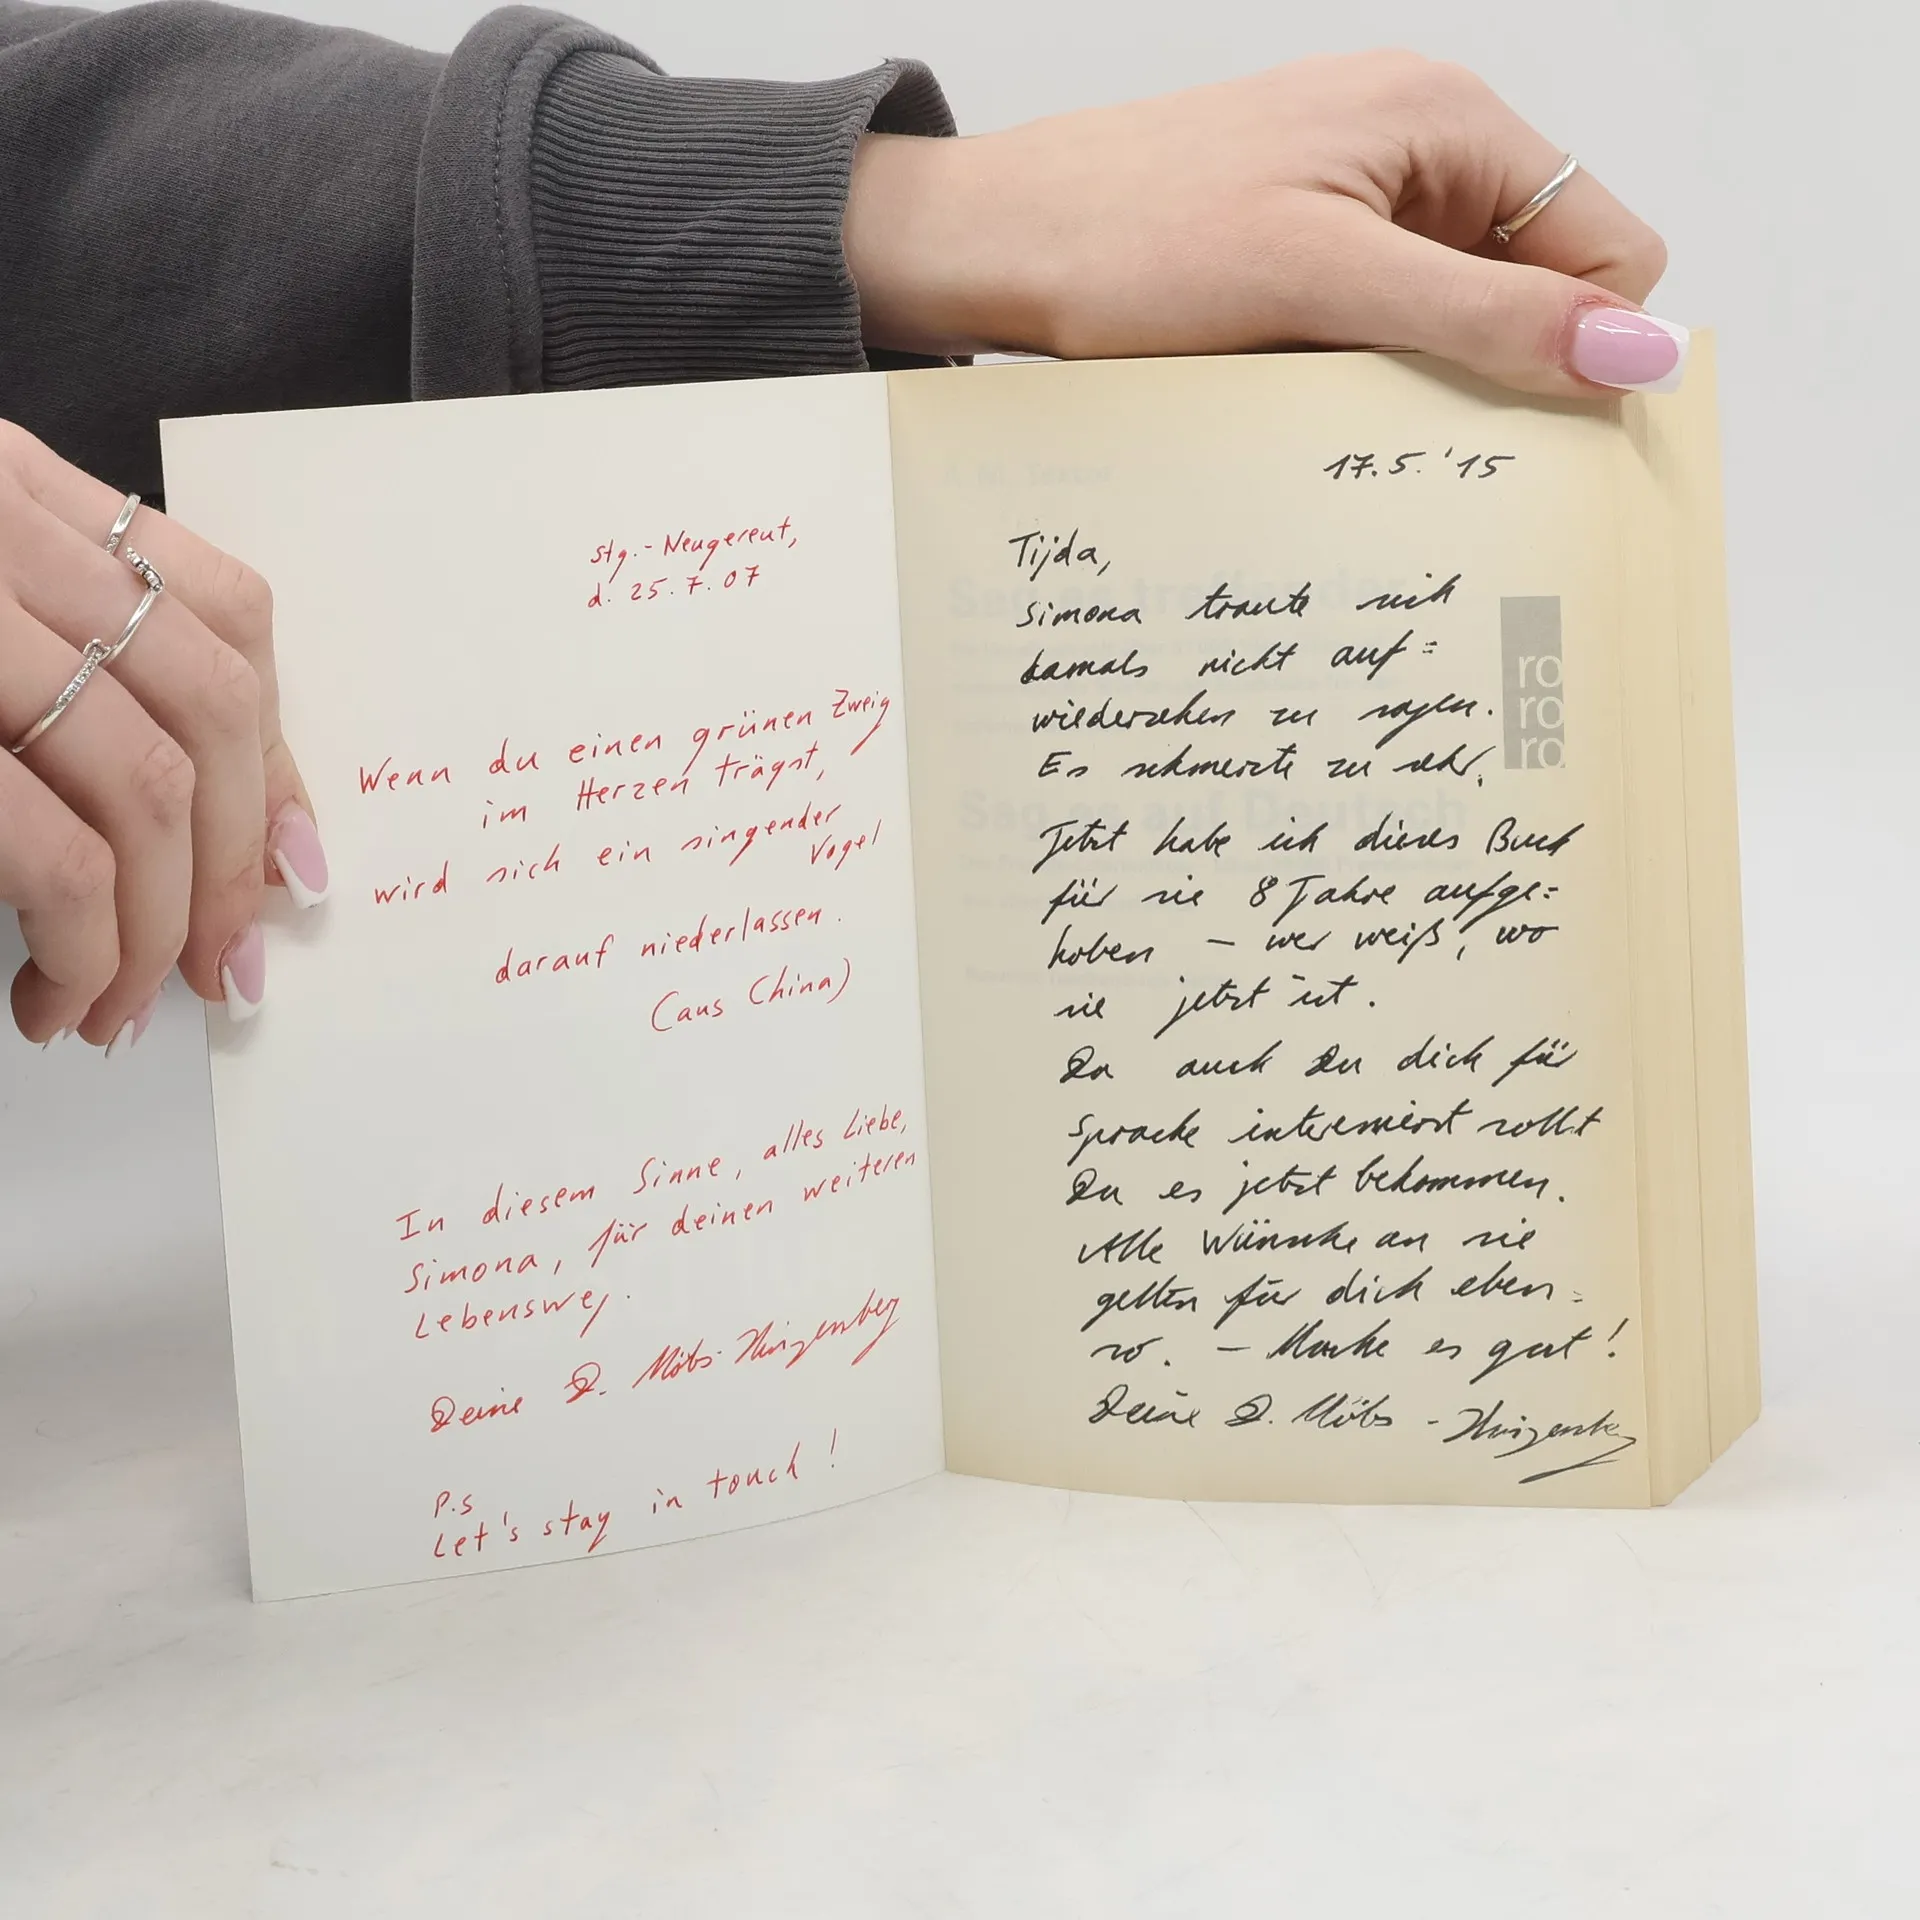 stg.- Neugereut,
d. 25.7.07
Wenn du einen grünen Zweig
im Herzen trägst,
wird sich ein singender
Vogel
darauf niederlassen.
(aus China)
In diesem Sinne, alles Liebe,
Simona, für deinen weiteren
Lebensweg.
Deine D. Möbs-
P.S
Let's stay in touch!
17.5.'15
Tijda,
Simona traute sich
damals nicht auf=
wiedersehen zu sagen.
Es schmerzte zu sehr.
Jetzt habe ich dieses Buch
für sie 8 Jahre aufge=
hoben – wer weiß, wo
sie jetzt ist.
Da auch Du dich für
Sprache interessierst sollst
Du es jetzt bekommen.
Alle Wünsche an sie
gelten für dich eben=
so. – Mache es gut!
Deine D. Möbs -
ro
ro
ro
Sag es treffender
Sag es auf Deutsch